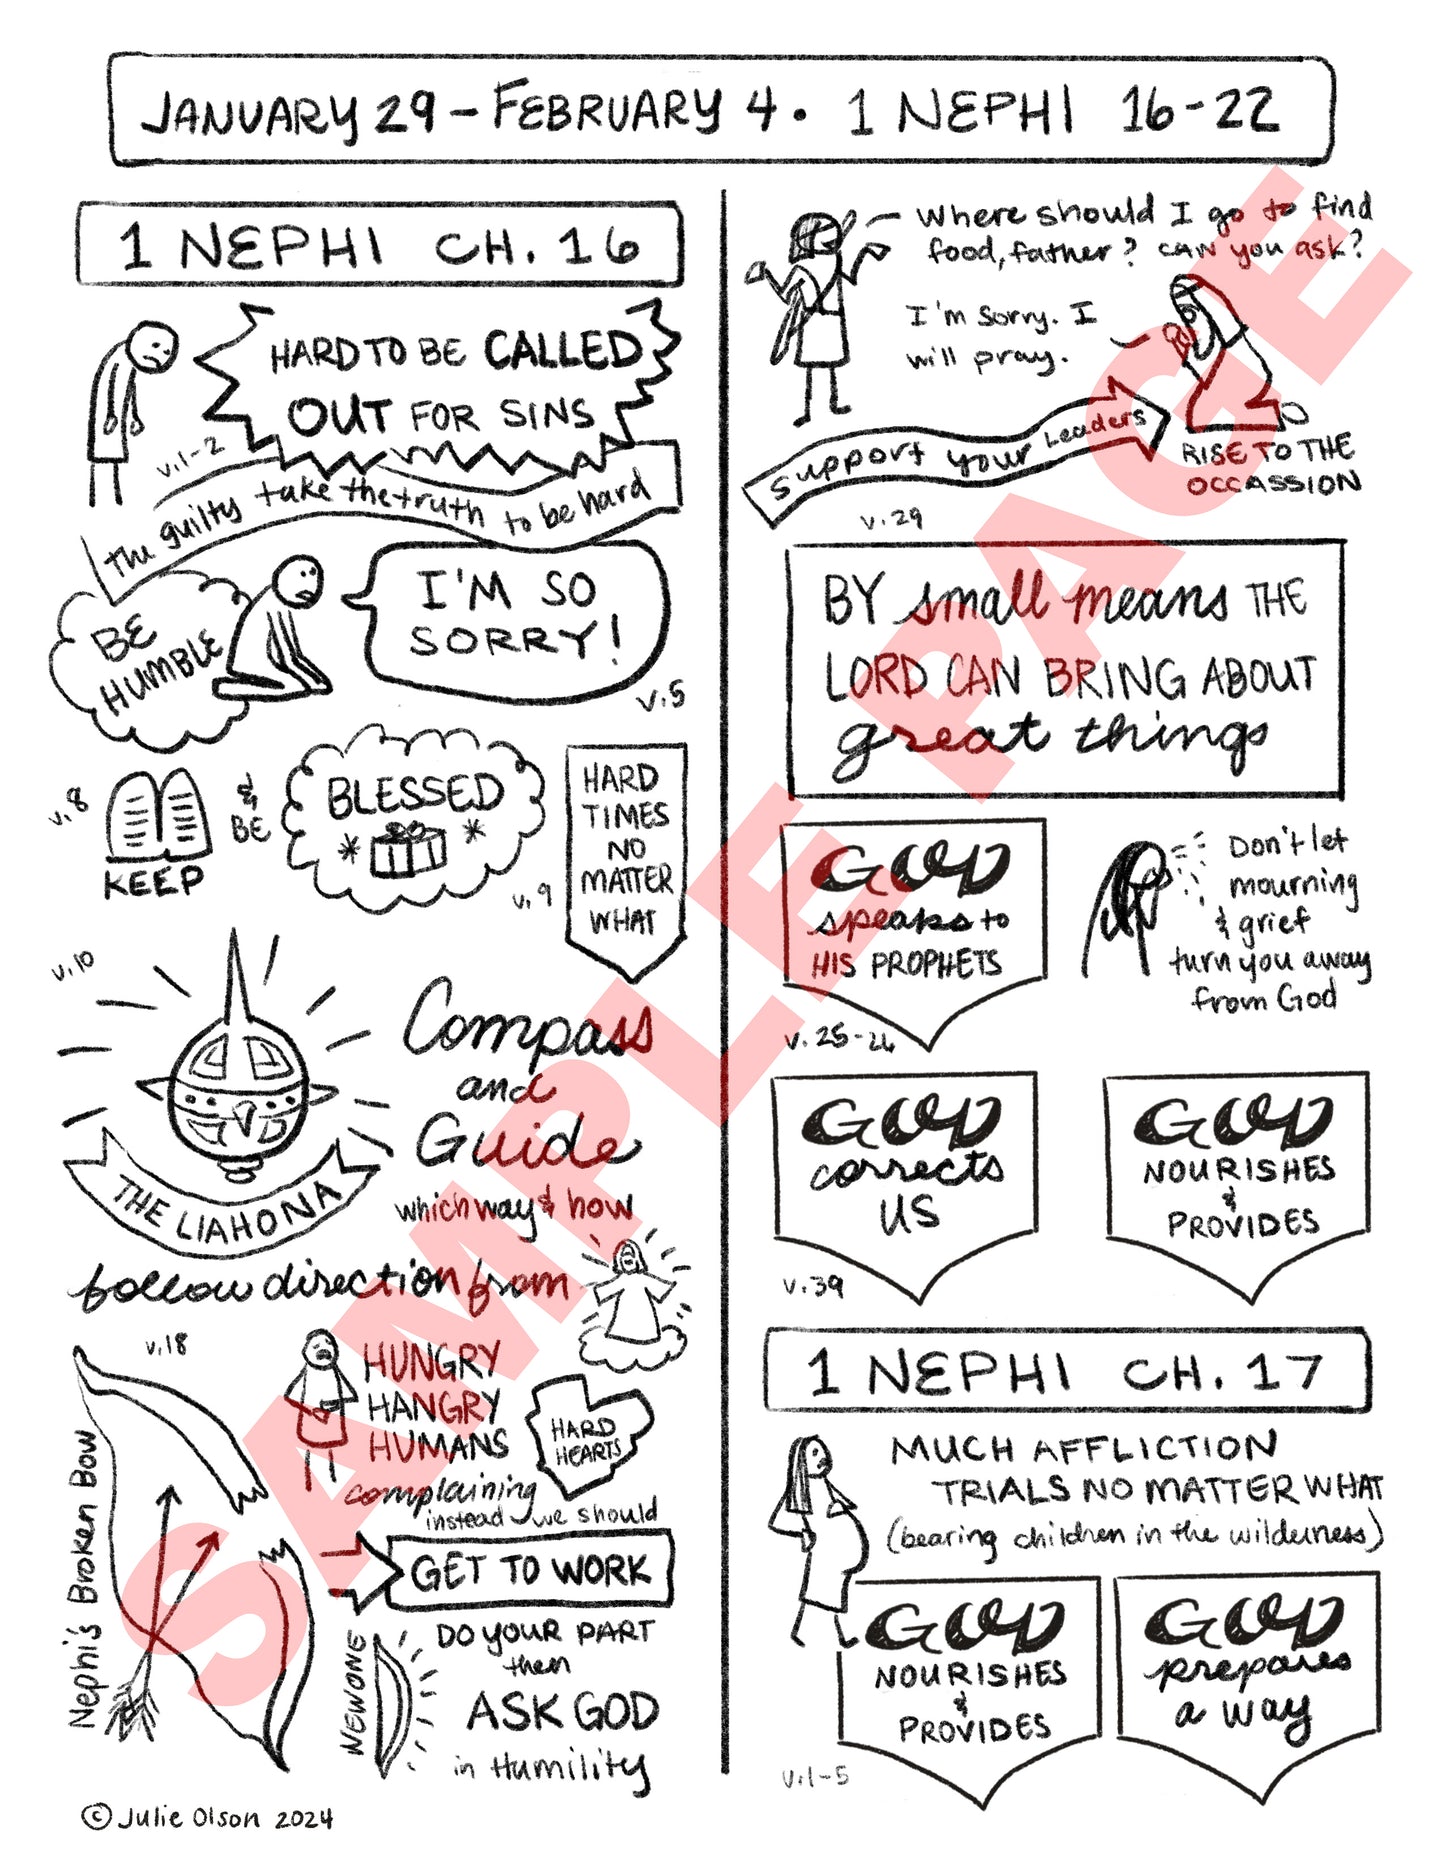 JANUARY 29 - FEBRUARY 4 • 1 NEPHI 16-22
1 NEPHI CH. 16
HARD TO BE CALLED
OUT FOR SINS
v.1-2
the guilty take the truth to be hard
BE
HUMBLE
I'M SO
SORRY!
v.5
v.8
KEEP
&
BE
BLESSED
v.9
HARD
TIMES
NO
MATTER
WHAT
v.10
THE LIAHONA
Compass
and
Guide
which way & how
follow direction from
v.18
Nephi's Broken Bow
HUNGRY
HANGRY
HUMANS
complaining
instead we should
HARD
HEARTS
GET TO WORK
NEW ONE
DO YOUR PART
then
ASK GOD
in Humility
© Julie Olson 2024
Where should I go to find
food, father? CAN you ask?
I'm sorry. I
will pray.
Support your Leaders
RISE TO THE
OCCASSION
v.29
BY small means THE
LORD CAN BRING ABOUT
great things
GOD
speaks to
HIS PROPHETS
v.25-26
Don't let
mourning
& grief
turn you away
from God
GOD
corrects
US
v.39
GOD
NOURISHES
&
PROVIDES
1 NEPHI CH. 17
MUCH AFFLICTION
TRIALS NO MATTER WHAT
(bearing children in the wilderness)
GOD
NOURISHES
&
PROVIDES
v.1-5
GOD
prepares
a way
SAMPLE PAGE